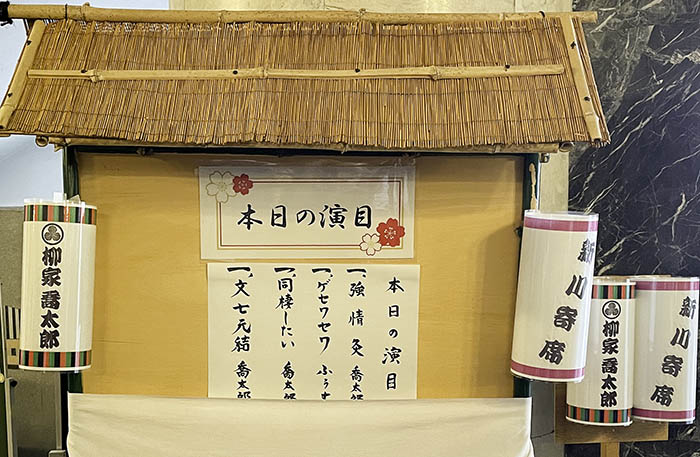 本日の演目
本日の演目
一、強情灸 喬太郎
一、ゲセワセワ ふぅす
一、同棲したい 喬太郎
一、文七元結 喬太郎
柳家喬太郎
新川寄席
柳家喬太郎
新川寄席